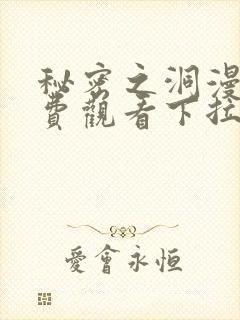 秘密之洞漫
費觀看下拉
愛會永恒